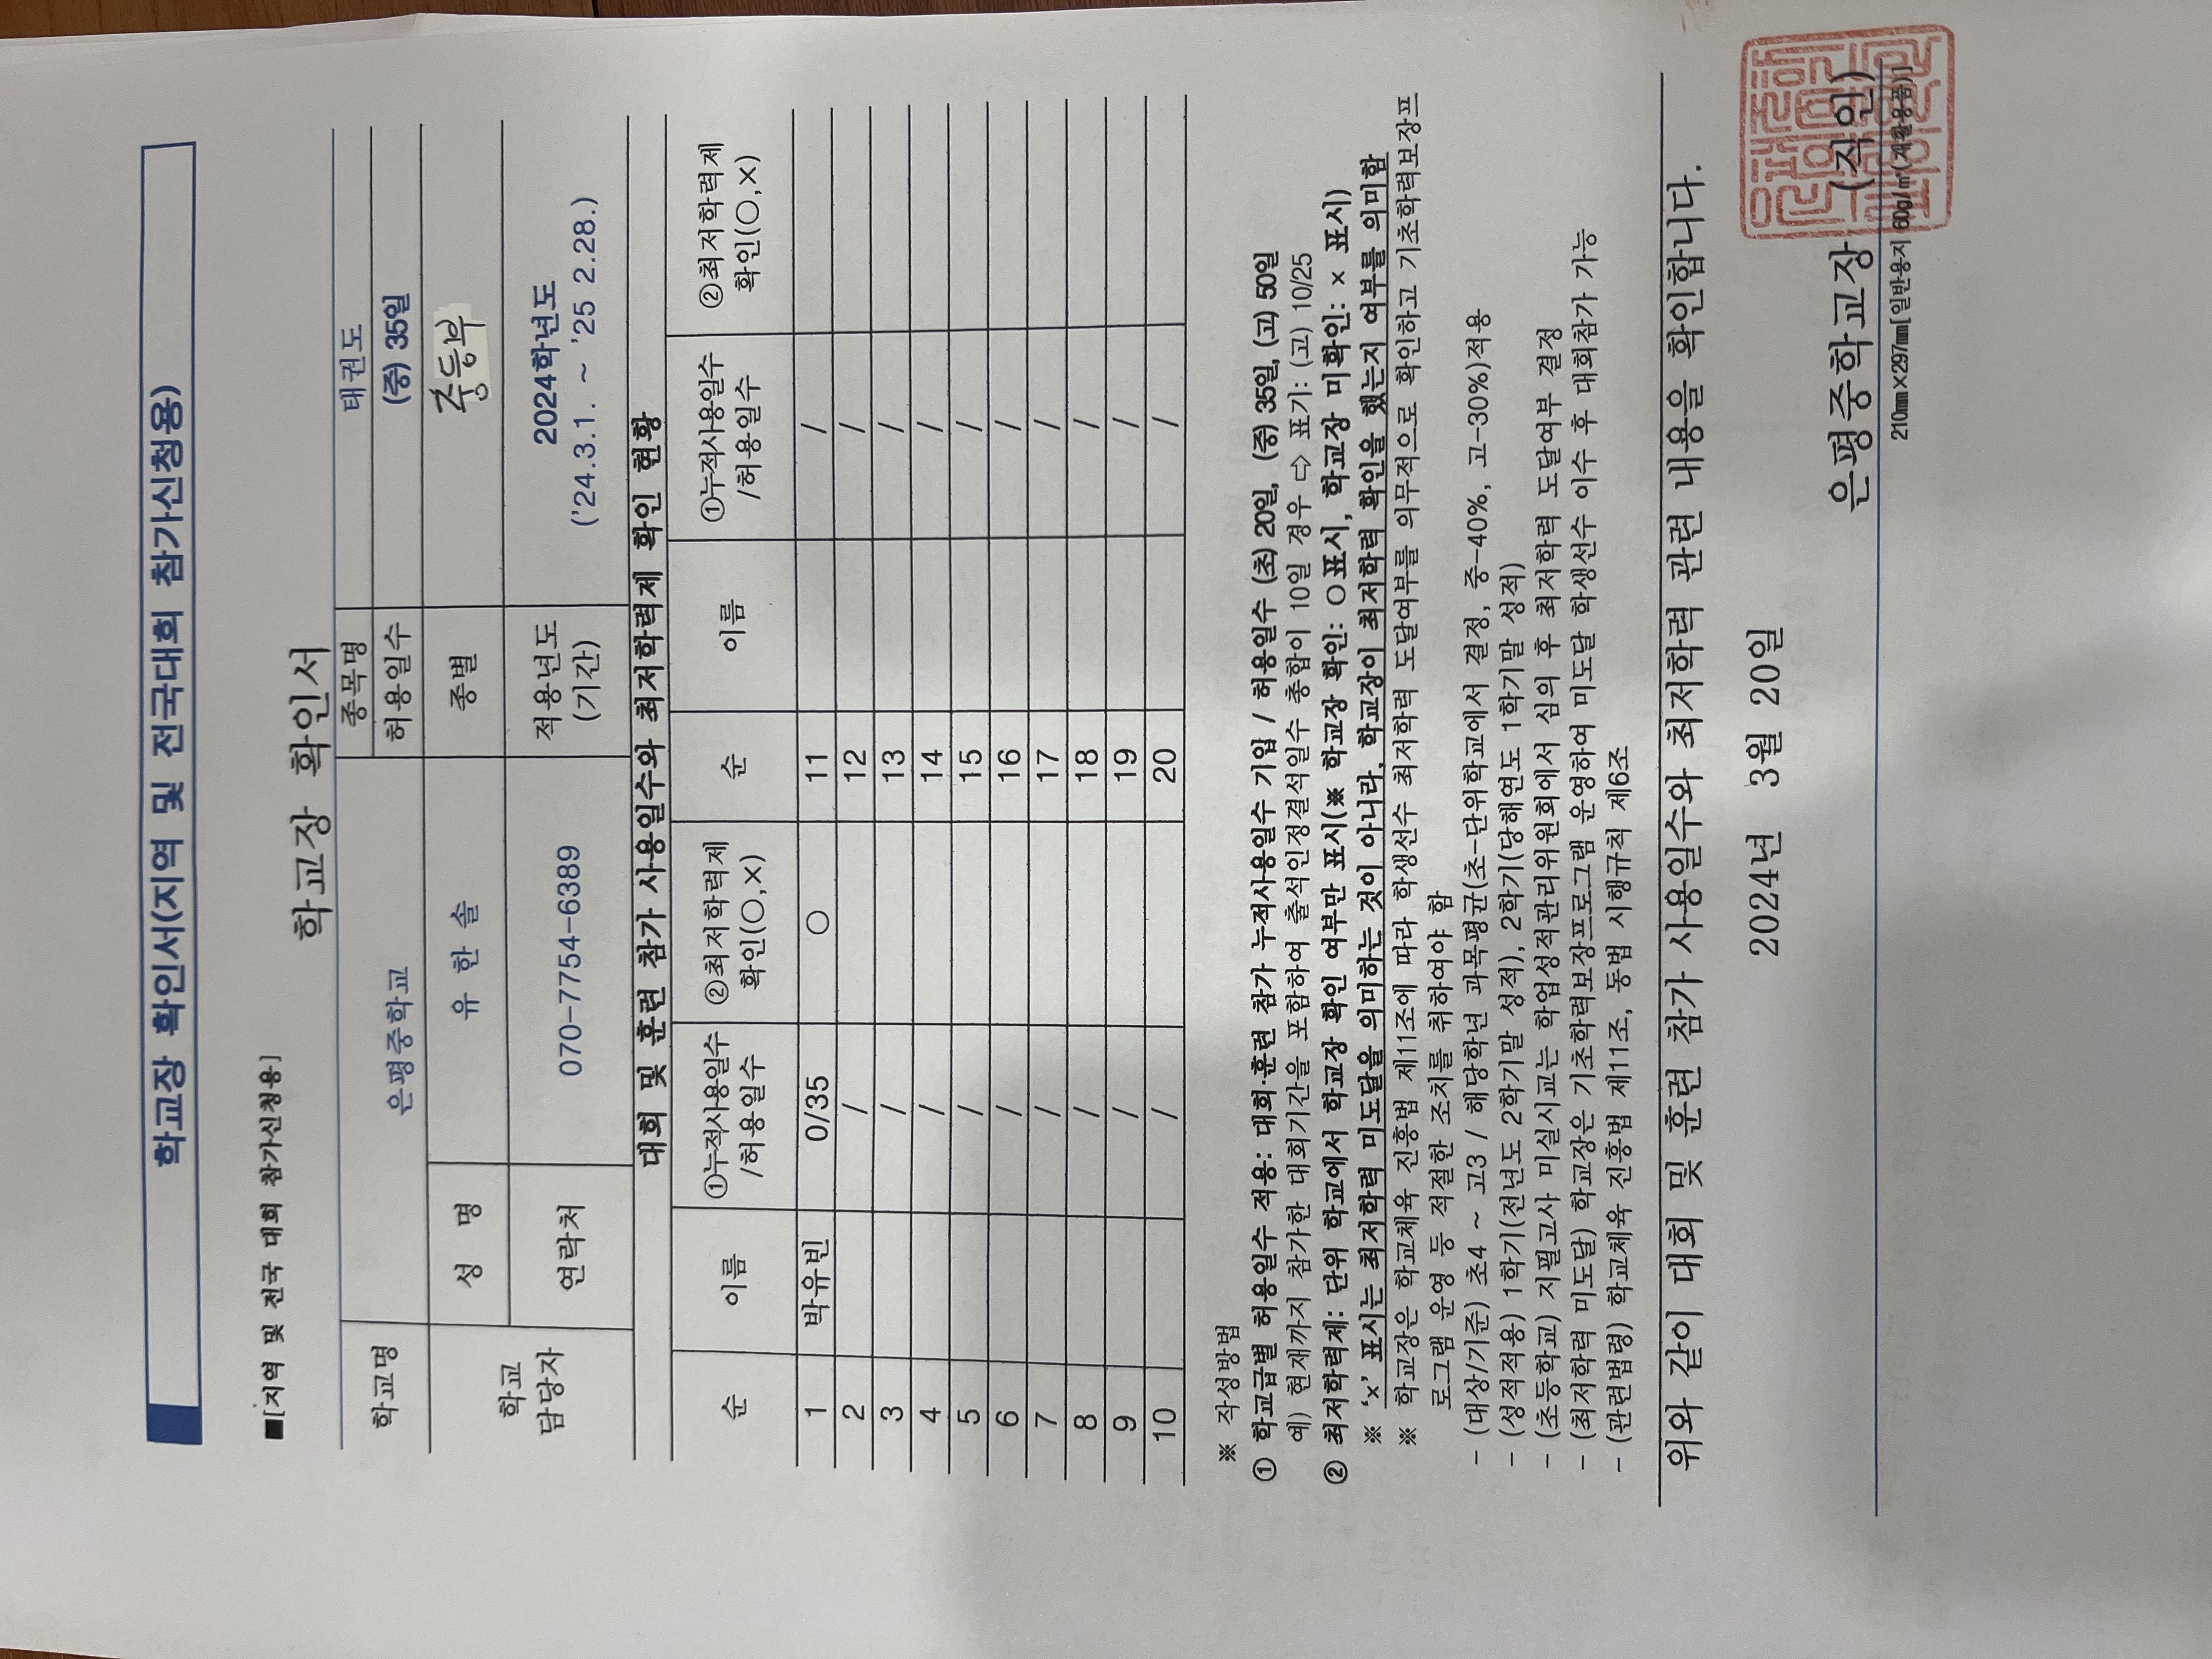 학교장 확인서(지역 및 전국대회 참가신청용)
■[지역 및 전국 대회 참가신청용]
학교장 확인서
학교명 은평중학교 종목명 태권도
허용일수 (중) 35일
학교 담당자 성 명 유 한 솔 종별 중등부
연락처 070-7754-6389 적용년도 (기간) 2024학년도
('24.3.1. ~ '25 2.28.)
대회 및 훈련 참가 사용일수와 최저학력제 확인 현황
순 이름 ①누적사용일수 /허용일수 ②최저학력제 확인(○,×) 순 이름 ①누적사용일수 /허용일수 ②최저학력제 확인(○,×)
1 박유빈 0/35 ○ 11 /
2 / 12 /
3 / 13 /
4 / 14 /
5 / 15 /
6 / 16 /
7 / 17 /
8 / 18 /
9 / 19 /
10 / 20 /
※ 작성방법
① 학교급별 허용일수 적용: 대회·훈련 참가 누적사용일수 기입 / 허용일수 (초) 20일, (중) 35일, (고) 50일
예) 현재까지 참가한 대회기간을 포함하여 출석인정결석일수 총합이 10일 경우 ⇨ 표기: (고) 10/25
② 최저학력제: 단위 학교에서 학교장 확인 여부만 표시(※ 학교장 확인: ○표시, 학교장 미확인: × 표시)
※ 'x' 표시는 최저학력 미도달을 의미하는 것이 아니라, 학교장이 최저학력 확인을 했는지 여부를 의미함
※ 학교장은 학교체육 진흥법 제11조에 따라 학생선수 최저학력 도달여부를 의무적으로 확인하고 기초학력보장프
로그램 운영 등 적절한 조치를 취하여야 함
- (대상/기준) 초4 ~ 고3 / 해당학년 과목평균(초-단위학교에서 결정, 중-40%, 고-30%)적용
- (성적적용) 1학기(전년도 2학기말 성적), 2학기(당해연도 1학기말 성적)
- (초등학교) 지필고사 미실시교는 학업성적관리위원회에서 심의 후 최저학력 도달여부 결정
- (최저학력 미도달) 학교장은 기초학력보장프로그램 운영하여 미도달 학생선수 이수 후 대회참가 가능
- (관련법령) 학교체육 진흥법 제11조, 동법 시행규칙 제6조
위와 같이 대회 및 훈련 참가 사용일수와 최저학력 관련 내용을 확인합니다.
2024년 3월 20일
은평중학교장 (직인)
210㎜×297㎜[일반용지 60g/㎡(재활용품)]